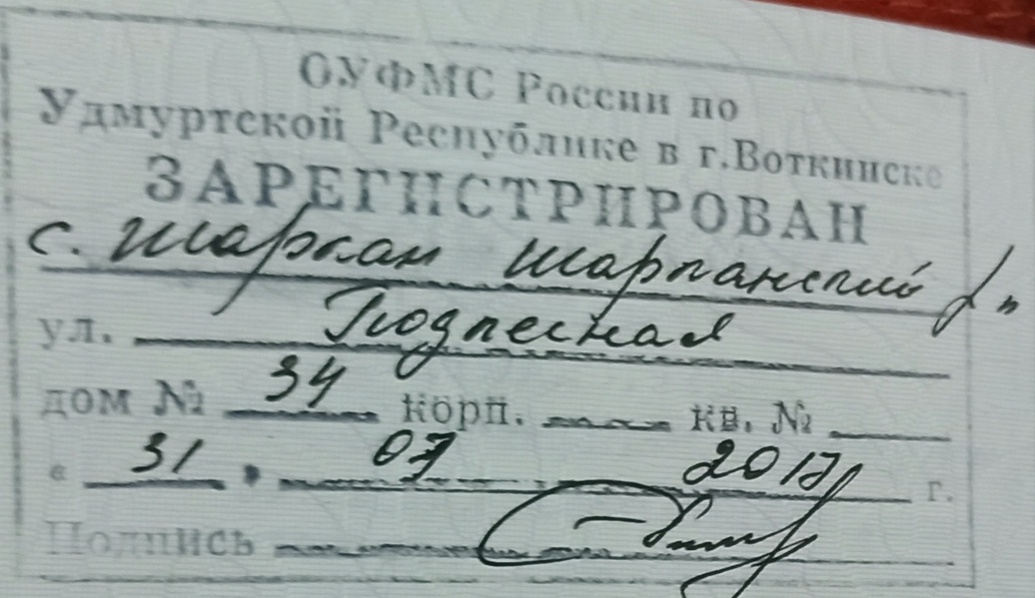 ОУФМС России по
Удмуртской Республике в г.Воткинске
ЗАРЕГИСТРИРОВАН
с. Шаркан Шарканский р-н
ул. Подлесная
дом № 34 корп. кв. №
« 31 » 07 2017 г.
Подпись